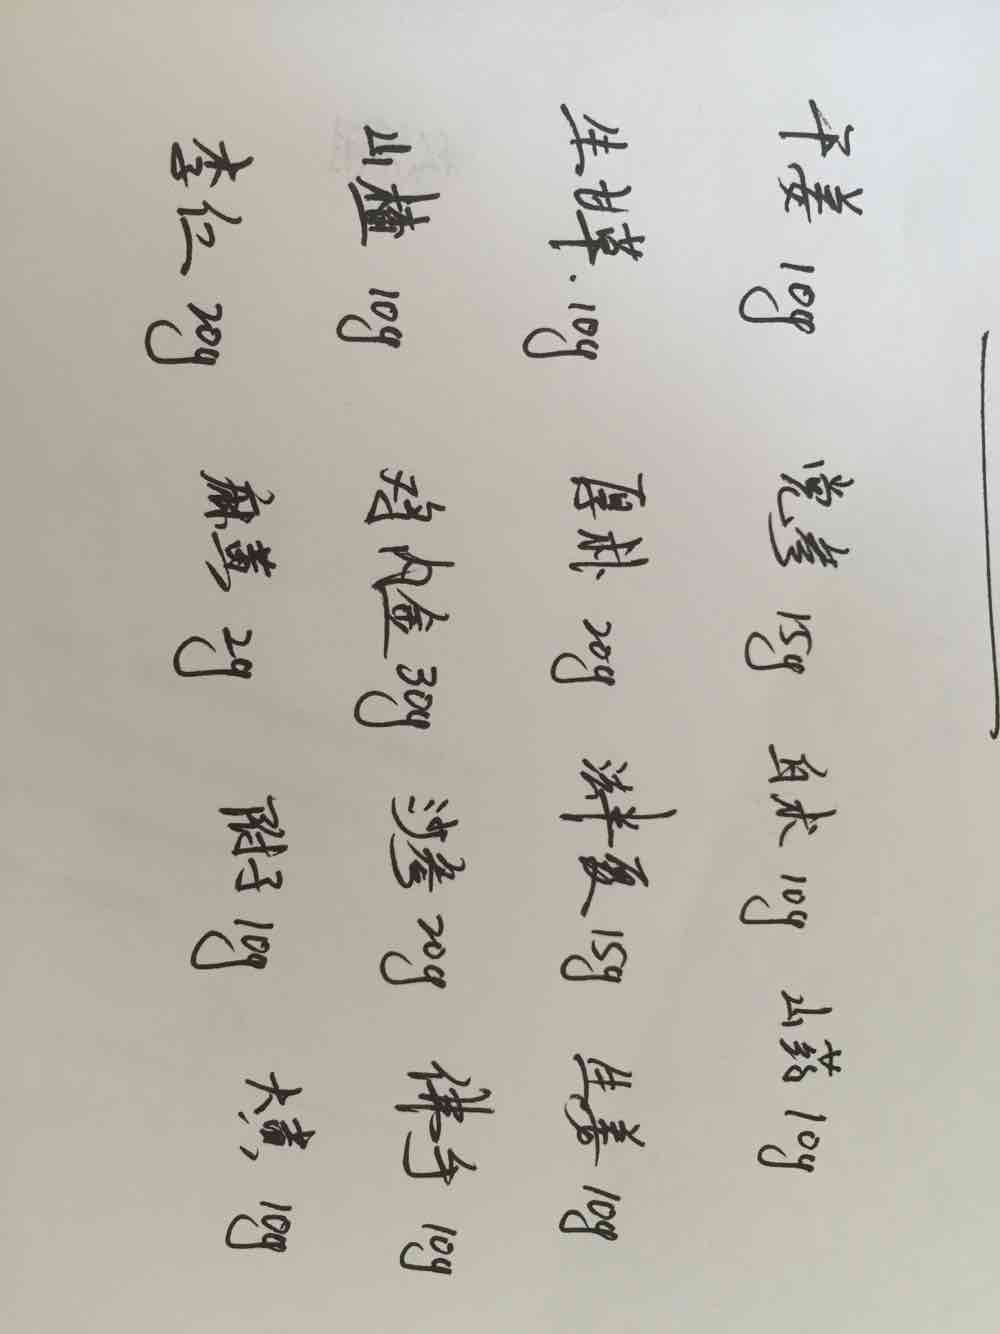 干姜 10g 党参 15g 白术 10g 山药 10g
生甘草. 10g 厚朴 20g 法半夏 15g 生姜 10g
山楂 10g 鸡内金 30g 沙参 20g 佛手 10g
杏仁 20g 麻黄 2g 附子 10g 大黄 10g